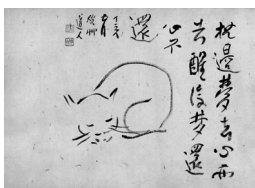 枕邊夢去心亦
去醒後夢還
心不
還
丁亥
道人